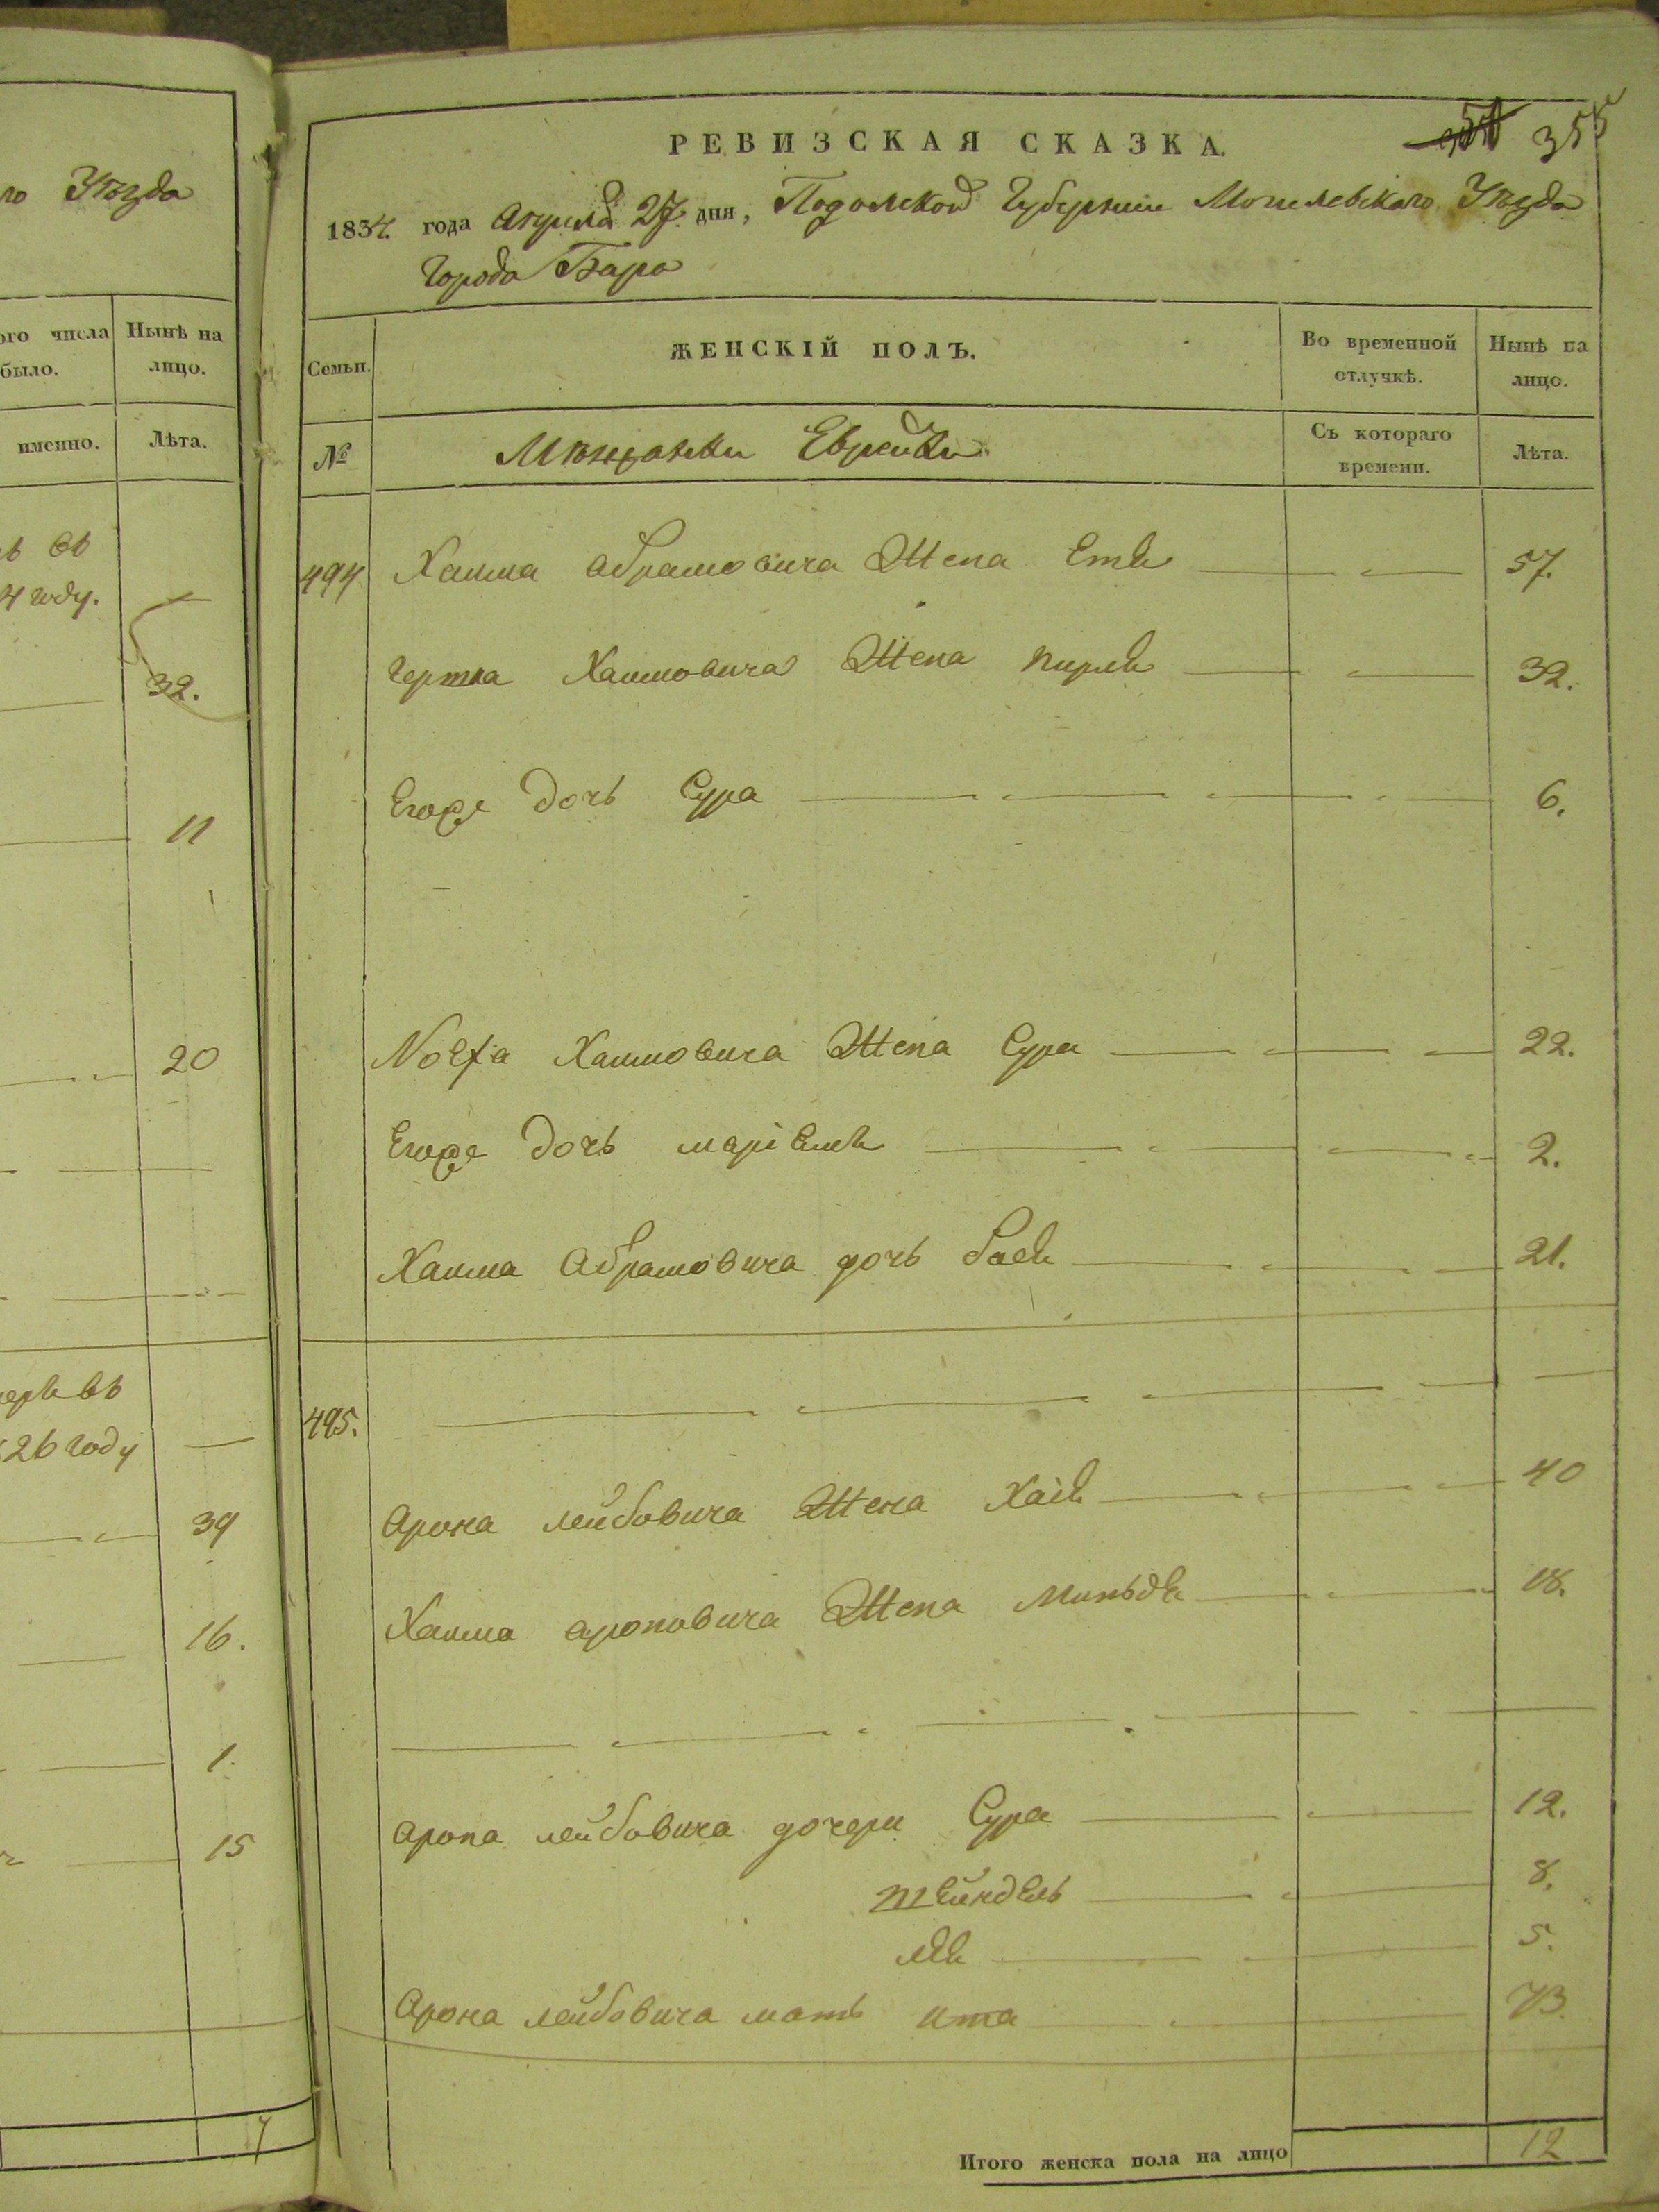 го Уѣзда
ого числа Нынѣ на
было. лицо.
именно. Лѣта.
въ
4 году. —
32.
11
20
въ
26 году —
39
16.
1.
15
7
РЕВИЗСКАЯ СКАЗКА.
355
1834. года Апреля 27. дня, Подольской Губернии Могилевскаго Уѣзда
Города Бара
Семьи. ЖЕНСКІЙ ПОЛЪ. Во временной отлучкѣ. Нынѣ на лицо.
№ Мѣщанки Еврейки. Съ котораго времени. Лѣта.
494 Хаима Абрамовича Жена Етя 57.
Гершка Хаимовича Жена Пирля 32.
Егоже дочь Сура 6.
Хаимовича Жена Сура 22.
Егоже дочь маріемъ 2.
Хаима Абрамовича дочь бася 21.
495.
Арона лейбовича Жена Хая 40
Хаима ароновича Жена Миньдя 18.
Арона лейбовича дочери Сура 12.
шейндель 8.
лея 5.
Арона лейбовича мать ита 73.
Итого женска пола на лицо 12